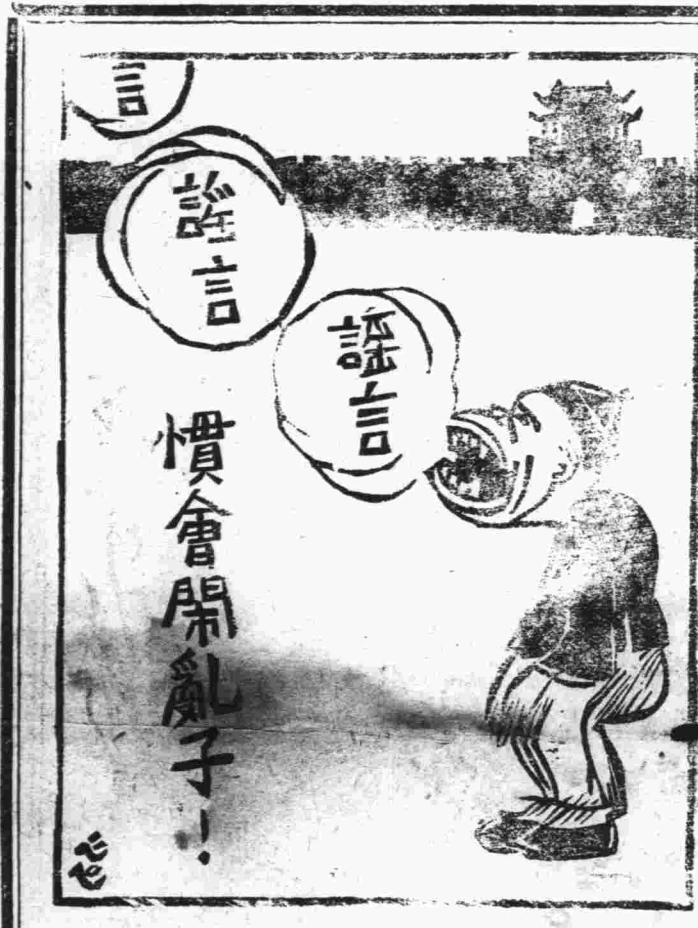 言
謠言
謠言
慣會鬧亂子！